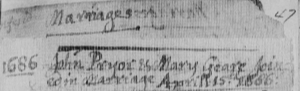 47
Marriages
1686 John Pryor & Mary Geare Join
ed in Marriage April 15: 1686: